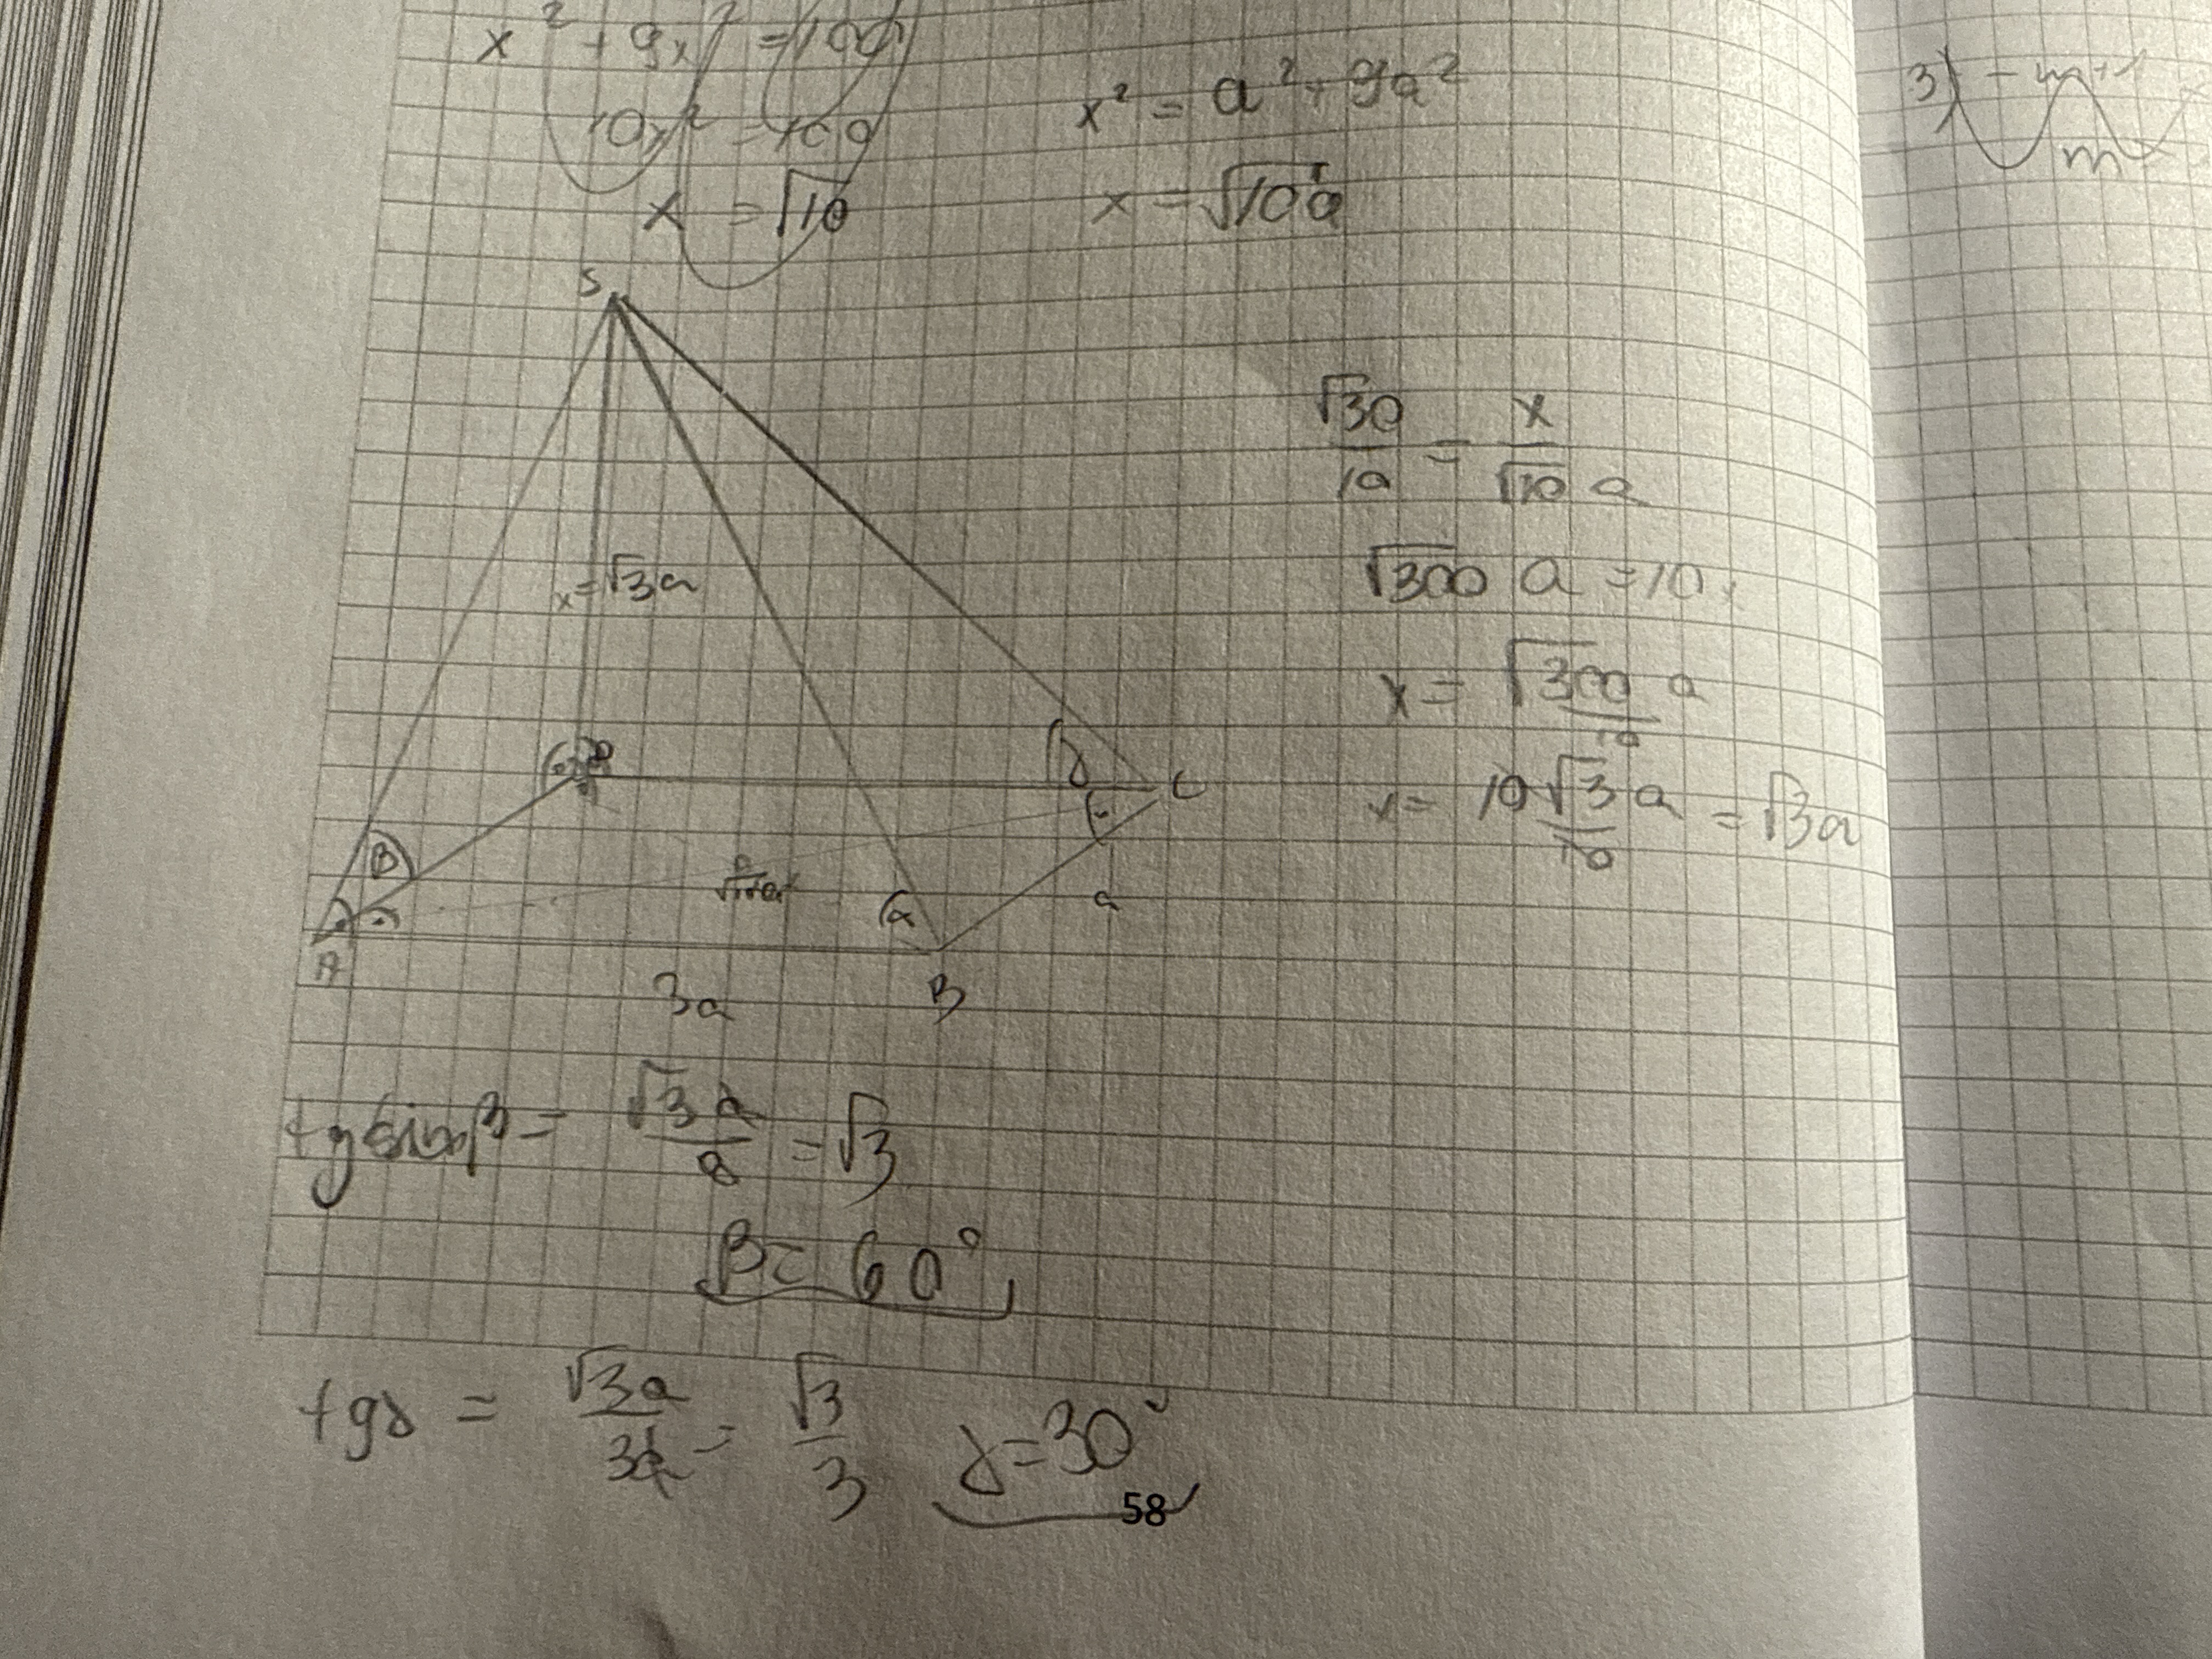 x² + 9x² = 100
10x² = 100
x = √10
x² = a² + 9a²
x = √10 a
3) - m+1
m
S
√30/10 = x/(√10 a)
√300 a = 10x
x = √300 a/10
x = 10√3 a/10 = √3a
x = √3a
D
C
β
α
a
A
B
3a
tg sin β = √3 a/a = √3
β = 60°
tgγ = √3a/3a = √3/3 γ = 30°
58